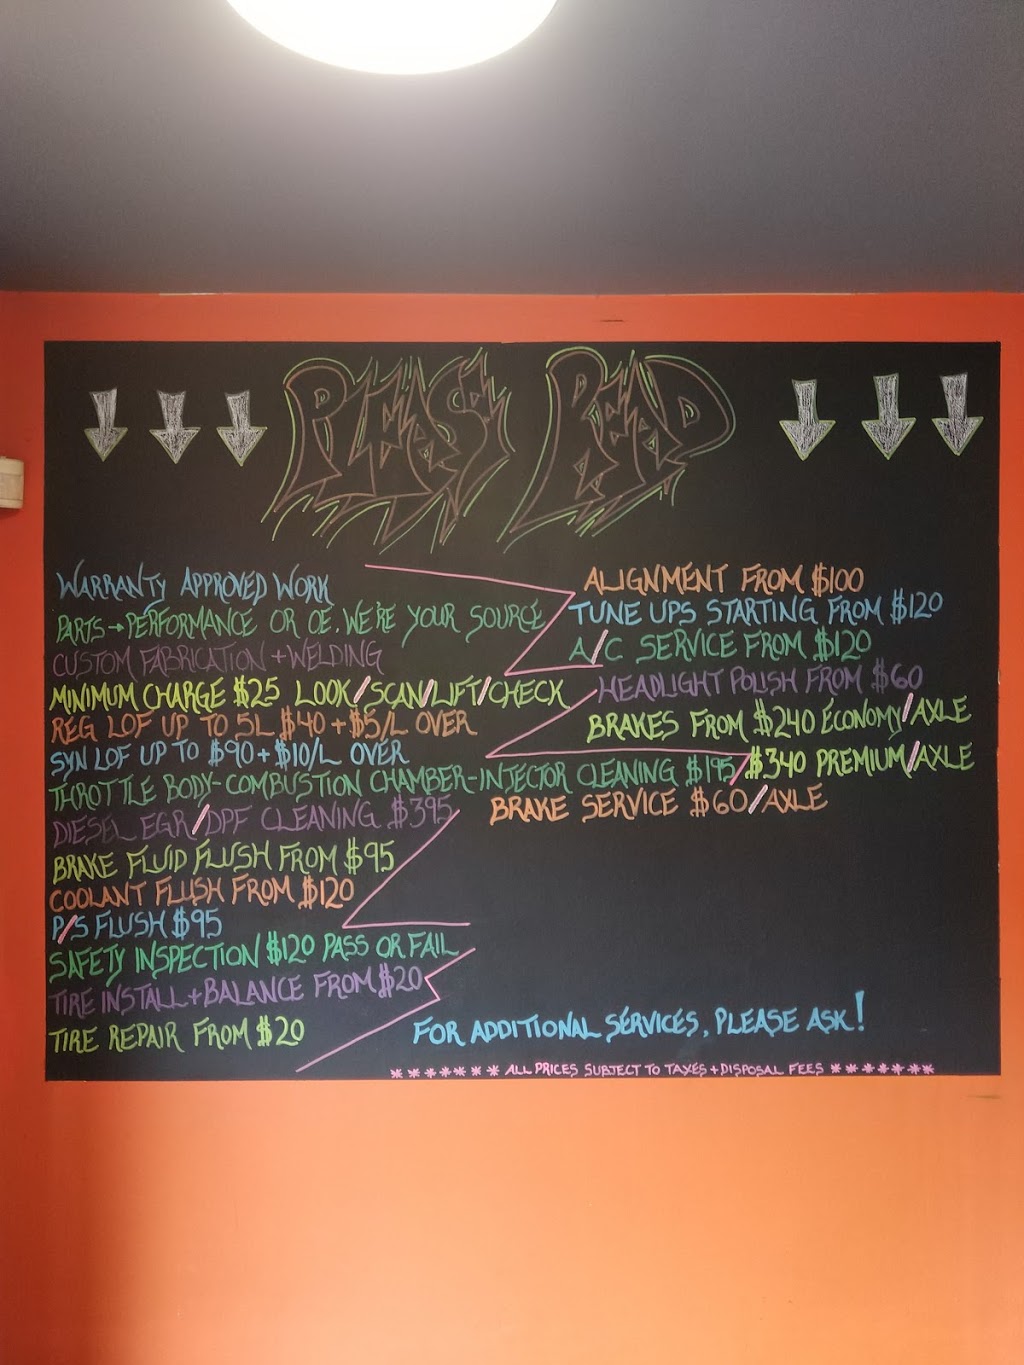 PLEASE READ
WARRANTY APPROVED WORK
PARTS → PERFORMANCE OR OE, WE'RE YOUR SOURCE
CUSTOM FABRICATION + WELDING
MINIMUM CHARGE $25 LOOK/SCAN/LIFT/CHECK
REG LOF UP TO 5L $40 + $5/L OVER
SYN LOF UP TO $90 + $10/L OVER
THROTTLE BODY-COMBUSTION CHAMBER-INJECTOR CLEANING $195
DIESEL EGR/DPF CLEANING $395
BRAKE FLUID FLUSH FROM $95
COOLANT FLUSH FROM $120
P/S FLUSH $95
SAFETY INSPECTION $120 PASS OR FAIL
TIRE INSTALL + BALANCE FROM $20
TIRE REPAIR FROM $20
ALIGNMENT FROM $100
TUNE UPS STARTING FROM $120
A/C SERVICE FROM $120
HEADLIGHT POLISH FROM $60
BRAKES FROM $240 ECONOMY/AXLE
$340 PREMIUM/AXLE
BRAKE SERVICE $60/AXLE
FOR ADDITIONAL SERVICES, PLEASE ASK!
******* ALL PRICES SUBJECT TO TAXES + DISPOSAL FEES *******